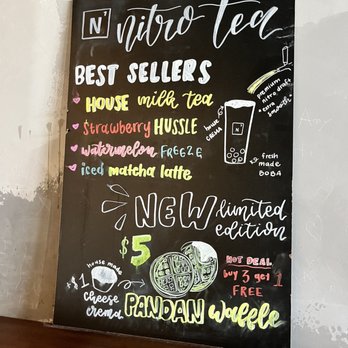 N7 nitro tea
BEST SELLERS
HOUSE milk tea
Strawberry HUSSLE
watermelon FREEZE
iced matcha latte
premium
nitro draft
"extra
smooth"
house
crema
N
fresh
made
BOBA
NEW limited
edition
$5
HOT DEAL
buy 3 get 1
FREE
house made
$1
cheese
crema
PANDAN waffle